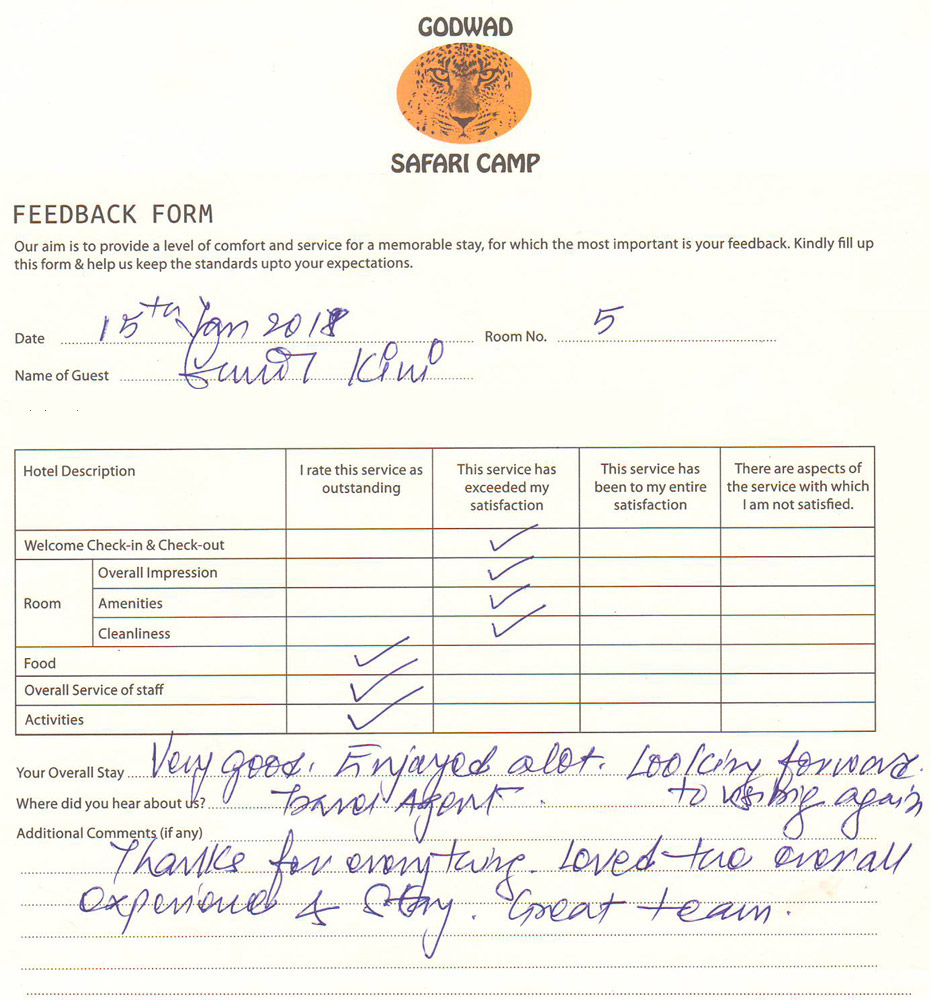 GODWAD
SAFARI CAMP
FEEDBACK FORM
Our aim is to provide a level of comfort and service for a memorable stay, for which the most important is your feedback. Kindly fill up
this form & help us keep the standards upto your expectations.
Date 15th Jan 2018 Room No. 5
Name of Guest Kini
Hotel Description
I rate this service as outstanding
This service has exceeded my satisfaction
This service has been to my entire satisfaction
There are aspects of the service with which I am not satisfied.
Welcome Check-in & Check-out ✓
Room
Overall Impression ✓
Amenities ✓
Cleanliness ✓
Food ✓
Overall Service of staff ✓
Activities ✓
Your Overall Stay Very good. Enjoyed alot. Looking forward.
Where did you hear about us? Travel Agent. to visiting again
Additional Comments (if any)
Thanks for everything. Loved the overall
experience & Stay. Great team.